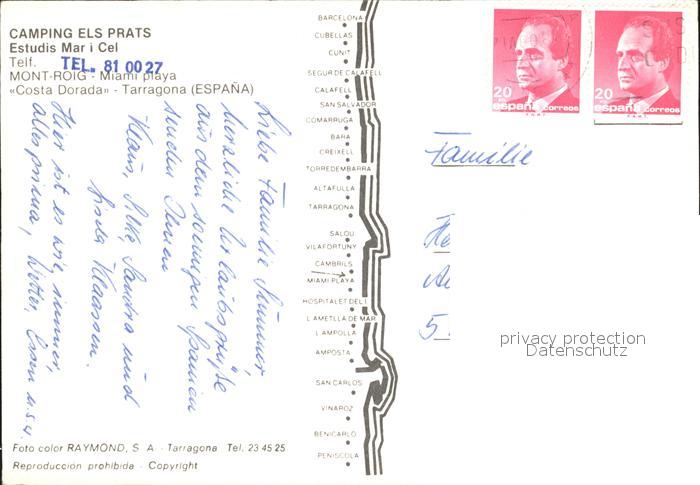 CAMPING ELS PRATS
Estudis Mar i Cel
Telf. TEL. 81 00 27
MONT-ROIG - Miami playa
«Costa Dorada» - Tarragona (ESPAÑA)
Liebe Familie
herzliche Urlaubsgrüße
aus dem sonnigen Spanien
senden Ihnen
Klaus, Silke, Sandra und
Klaassen.
Hier ist es wie immer,
alles prima, Wetter, Essen u.s.w.
Foto color RAYMOND, S. A. - Tarragona Tel. 23 45 25
Reproducción prohibida - Copyright
BARCELONA
CUBELLAS
CUNIT
SEGUR DE CALAFELL
CALAFELL
SAN SALVADOR
COMARRUGA
BARA
CREIXELL
TORREDEMBARRA
ALTAFULLA
TARRAGONA
SALOU
VILAFORTUNY
CAMBRILS
MIAMI PLAYA
HOSPITALET DEL I.
L'AMETLLA DE MAR
L'AMPOLLA
AMPOSTA
SAN CARLOS
VINAROZ
BENICARLO
PEÑISCOLA
20 españa correos
F.N.M.T.
20 españa correos
F.N.M.T.
Familie
He
5
privacy protection
Datenschutz